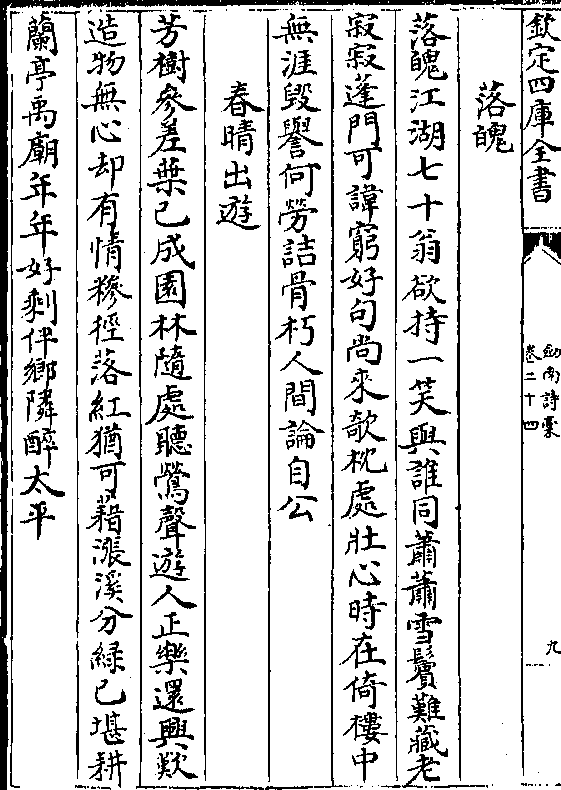 欽定四庫全書
劍南詩藁
卷二十四
九
落魄
落魄江湖七十翁欲持一笑與誰同蕭蕭雪鬢難藏老
寂寂蓬門可諱窮好句尚來欹枕處壯心時在倚樓中
無涯毁譽何勞詰骨朽人間論自公
春晴出遊
芳樹參差葉已成園林隨處聽鶯聲遊人正樂還興歎
造物無心却有情糝徑落紅猶可藉漲溪分緑已堪耕
蘭亭禹廟年年好剩伴鄉隣醉太平